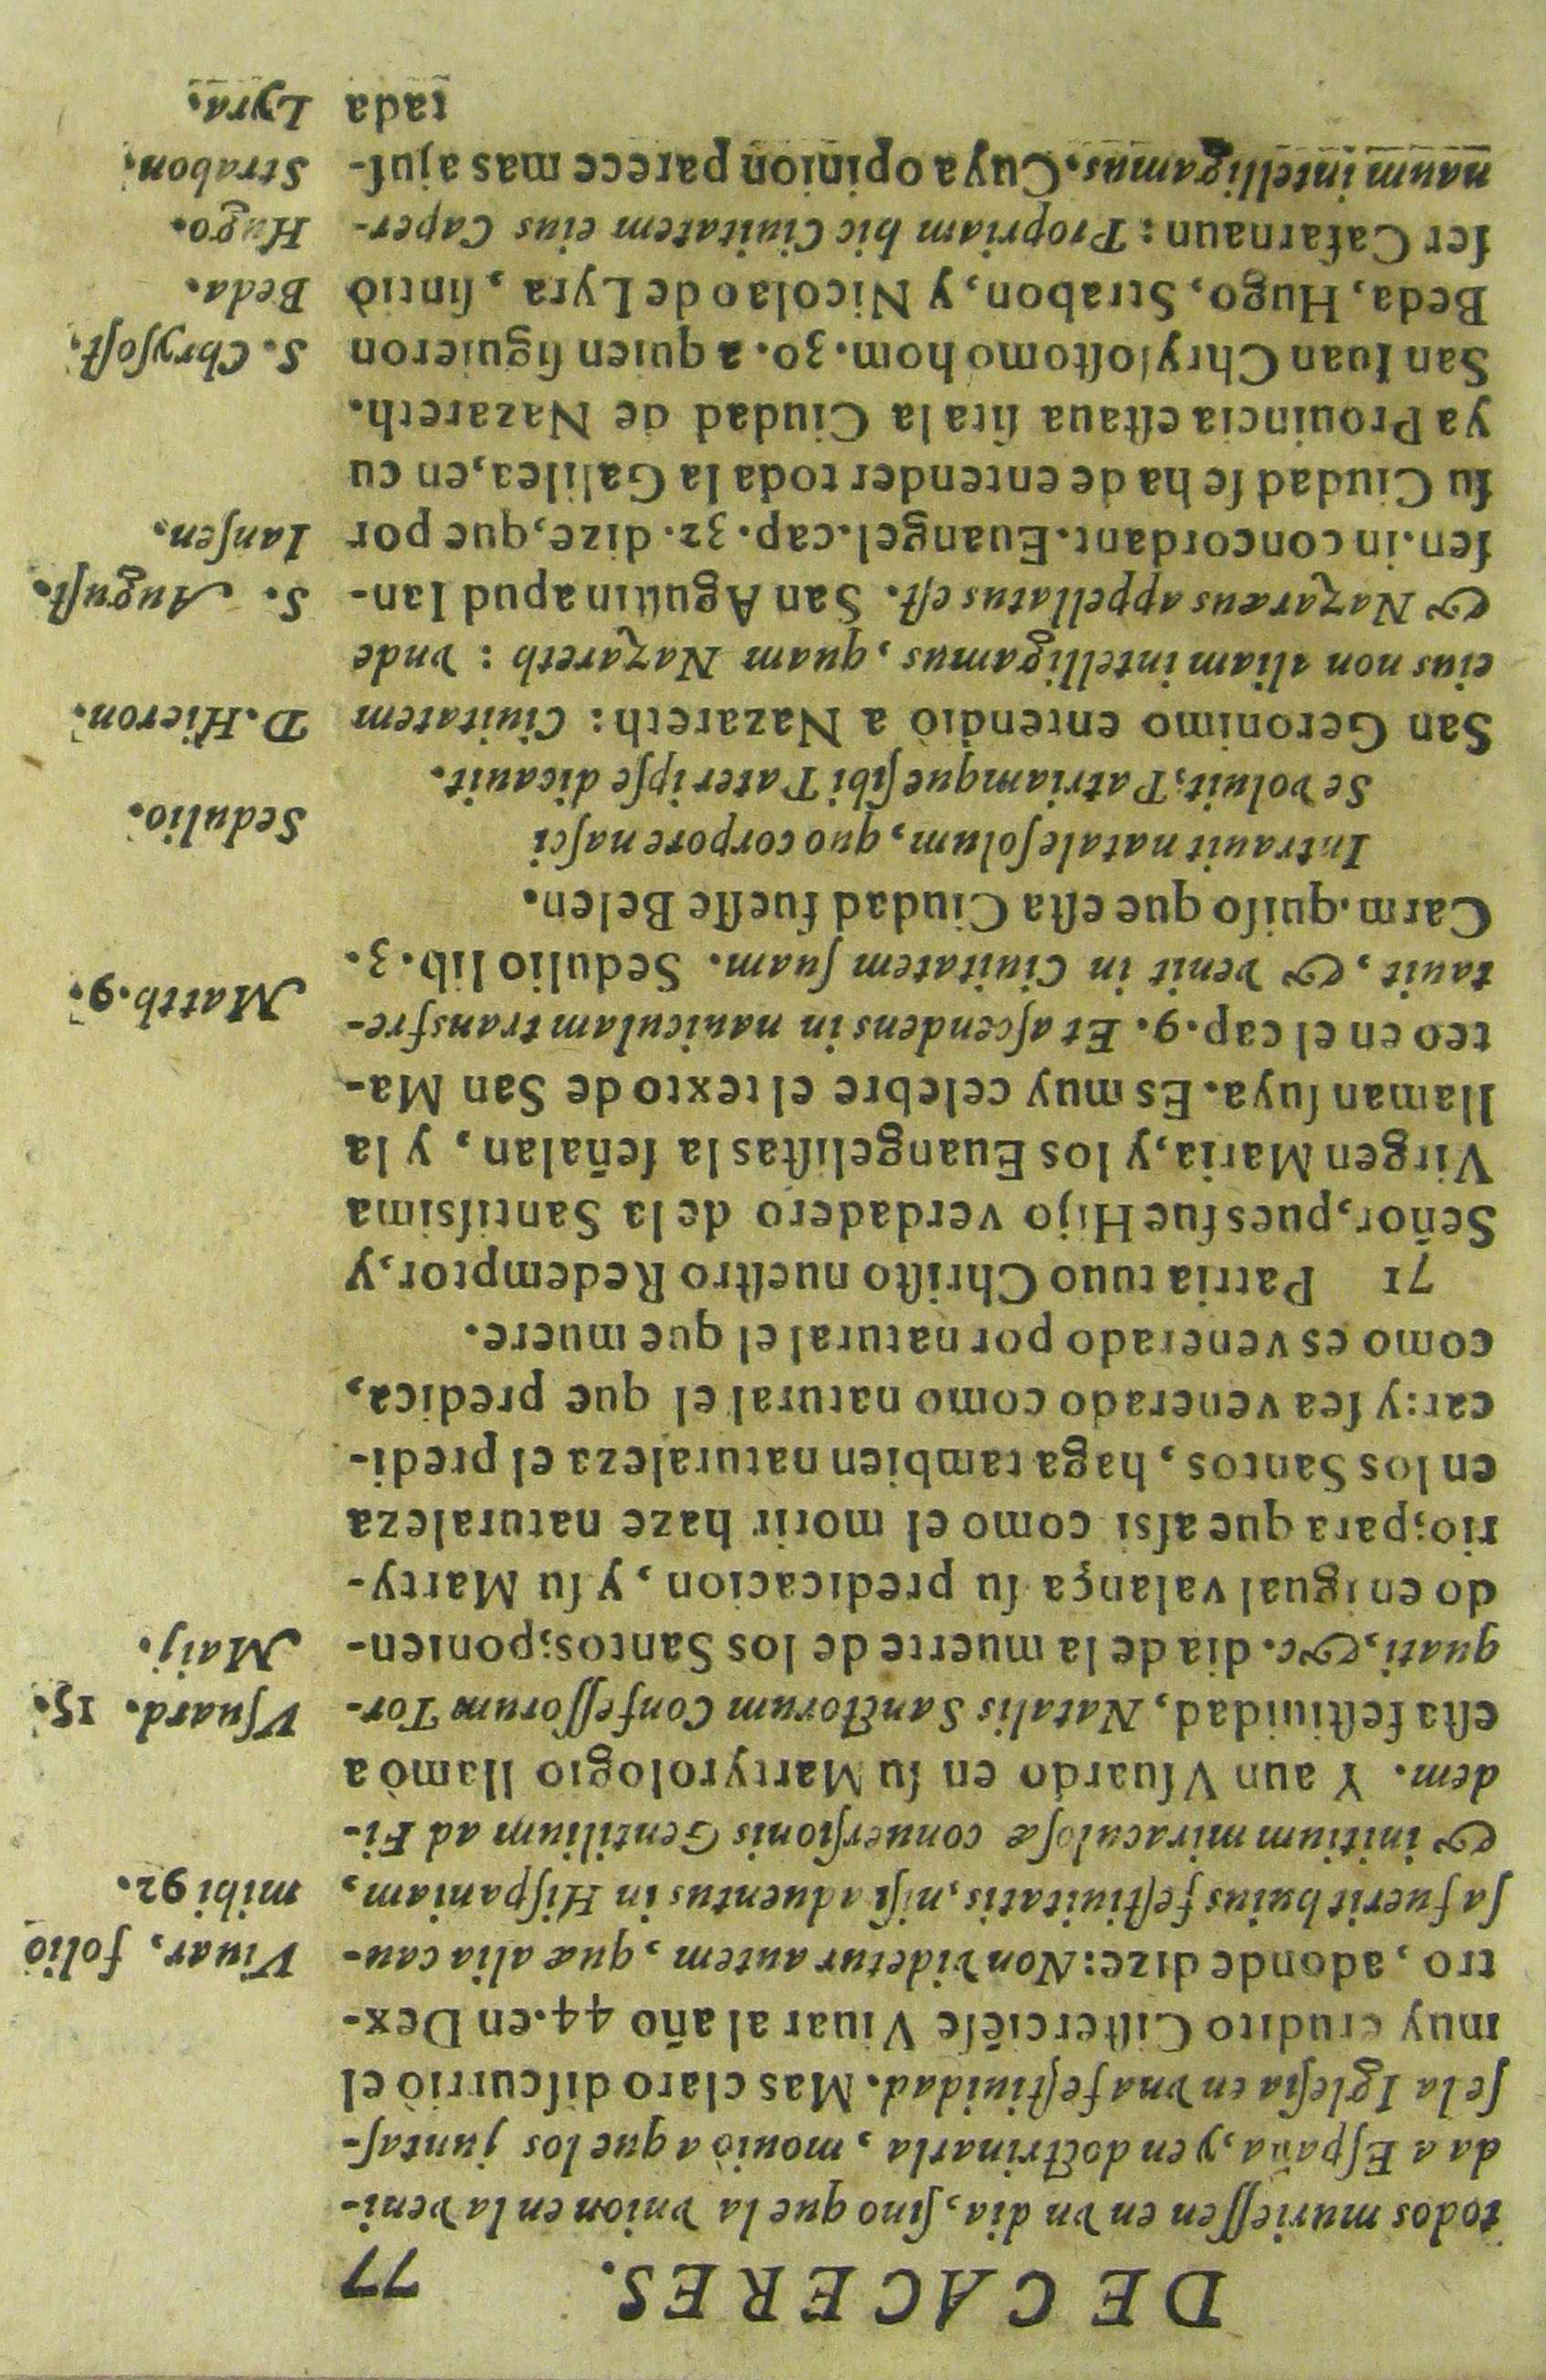 DE CACERES. 77
todos murieſſen en vn dia, ſino que la vnion en la veni-
da a Eſpaña, y en doctrinarla, mouiò a que los juntaſ-
ſe la Igleſia en vna feſtiuidad. Mas claro diſcurriò el
muy erudito Ciſterciēſe Viuar al año 44. en Dex-
tro, adonde dize: Non videtur autem, quæ alia cau-
ſa fuerit huius feſtiuitatis, niſi aduentus in Hiſpaniam,
& initium miraculoſæ conuerſionis Gentilium ad Fi-
dem. Y aun Vſuardo en ſu Martyrologio llamò a
eſta feſtiuidad, Natalis Sanctorum Confeſſorum Tor-
quati, &c. dia de la muerte de los Santos; ponien-
do en igual valança ſu predicacion, y ſu Marty-
rio; para que aſsi como el morir haze naturaleza
en los Santos, haga tambien naturaleza el predi-
car: y ſea venerado como natural el que predica,
como es venerado por natural el que muere.
71 Patria tuuo Chriſto nueſtro Redemptor, y
Señor, pues fue Hijo verdadero de la Santiſsima
Virgen Maria, y los Euangeliſtas la ſeñalan, y la
llaman ſuya. Es muy celebre el texto de San Ma-
teo en el cap. 9. Et aſcendens in nauiculam transfre-
tauit, & venit in Ciuitatem ſuam. Sedulio lib. 3.
Carm. quiſo que eſta Ciudad fueſſe Belen.
Intrauit natale ſolum, quo corpore naſci
Se voluit, Patriamque ſibi Pater ipſe dicauit.
San Geronimo entendiò a Nazareth: Ciuitatem
eius non aliam intelligamus, quam Nazareth: vnde
& Nazaræus appellatus eſt. San Aguſtin apud Ian-
ſen. in concordant. Euangel. cap. 32. dize, que por
ſu Ciudad ſe ha de entender toda la Galilea, en cu
ya Prouincia eſtaua ſita la Ciudad de Nazareth.
San Iuan Chryſoſtomo hom. 30. a quien ſiguieron
Beda, Hugo, Strabon, y Nicolao de Lyra, ſintiò
ſer Cafarnaun: Propriam hic Ciuitatem eius Caper-
naum intelligamus. Cuya opinion parece mas ajuſ-
tada
Viuar, folio
mihi 92.
Vſuard. 15.
Maij.
Matth. 9.
Sedulio.
D. Hieron.
S. Auguſt.
Ianſen.
S. Chryſoſt.
Beda.
Hugo.
Strabon.
Lyra.